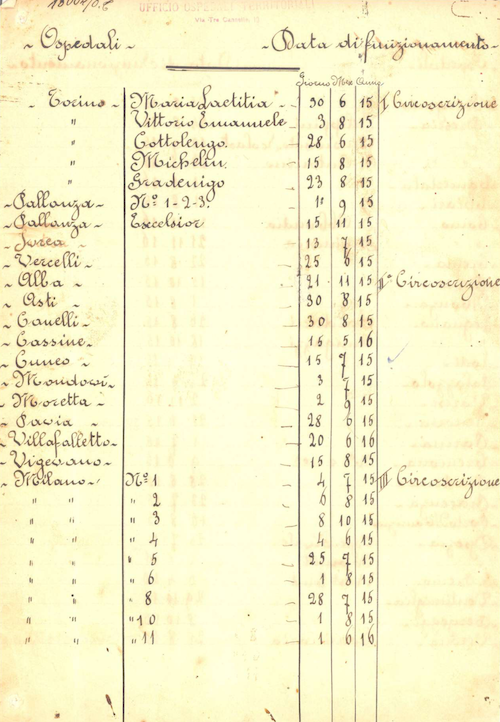 UFFICIO OSPEDALI TERRITORIALI
~ Ospedali ~ ~ Data di funzionamento ~
Giorno Mese Anno
~ Torino ~ Maria Laetitia 30 6 15 I Circoscrizione
" Vittorio Emanuele 3 8 15
" Cottolengo 28 6 15
" Michelin 15 8 15
" Gradenigo 23 8 15
~ Pallanza ~ Nº 1-2-3 1º 9 15
~ Pallanza ~ Excelsior 15 11 15
~ Ivrea ~ 13 7 15
~ Vercelli ~ 25 6 15
~ Alba ~ 21 11 15 IIª Circoscrizione
~ Asti ~ 30 8 15
~ Canelli ~ 30 8 15
~ Cassine ~ 16 5 16
~ Cuneo ~ 15 7 15
~ Mondovì ~ 3 7 15
~ Moretta ~ 2 9 15
~ Pavia ~ 28 6 15
~ Villafalletto ~ 20 6 16
~ Vigevano ~ 15 8 15
~ Milano ~ Nº 1 4 7 15 III Circoscrizione
" " " 2 6 8 15
" " " 3 8 10 15
" " " 4 4 6 15
" " " 5 25 7 15
" " " 6 1 8 15
" " " 8 28 7 15
" " " 10 1 8 15
" " " 11 1 6 16